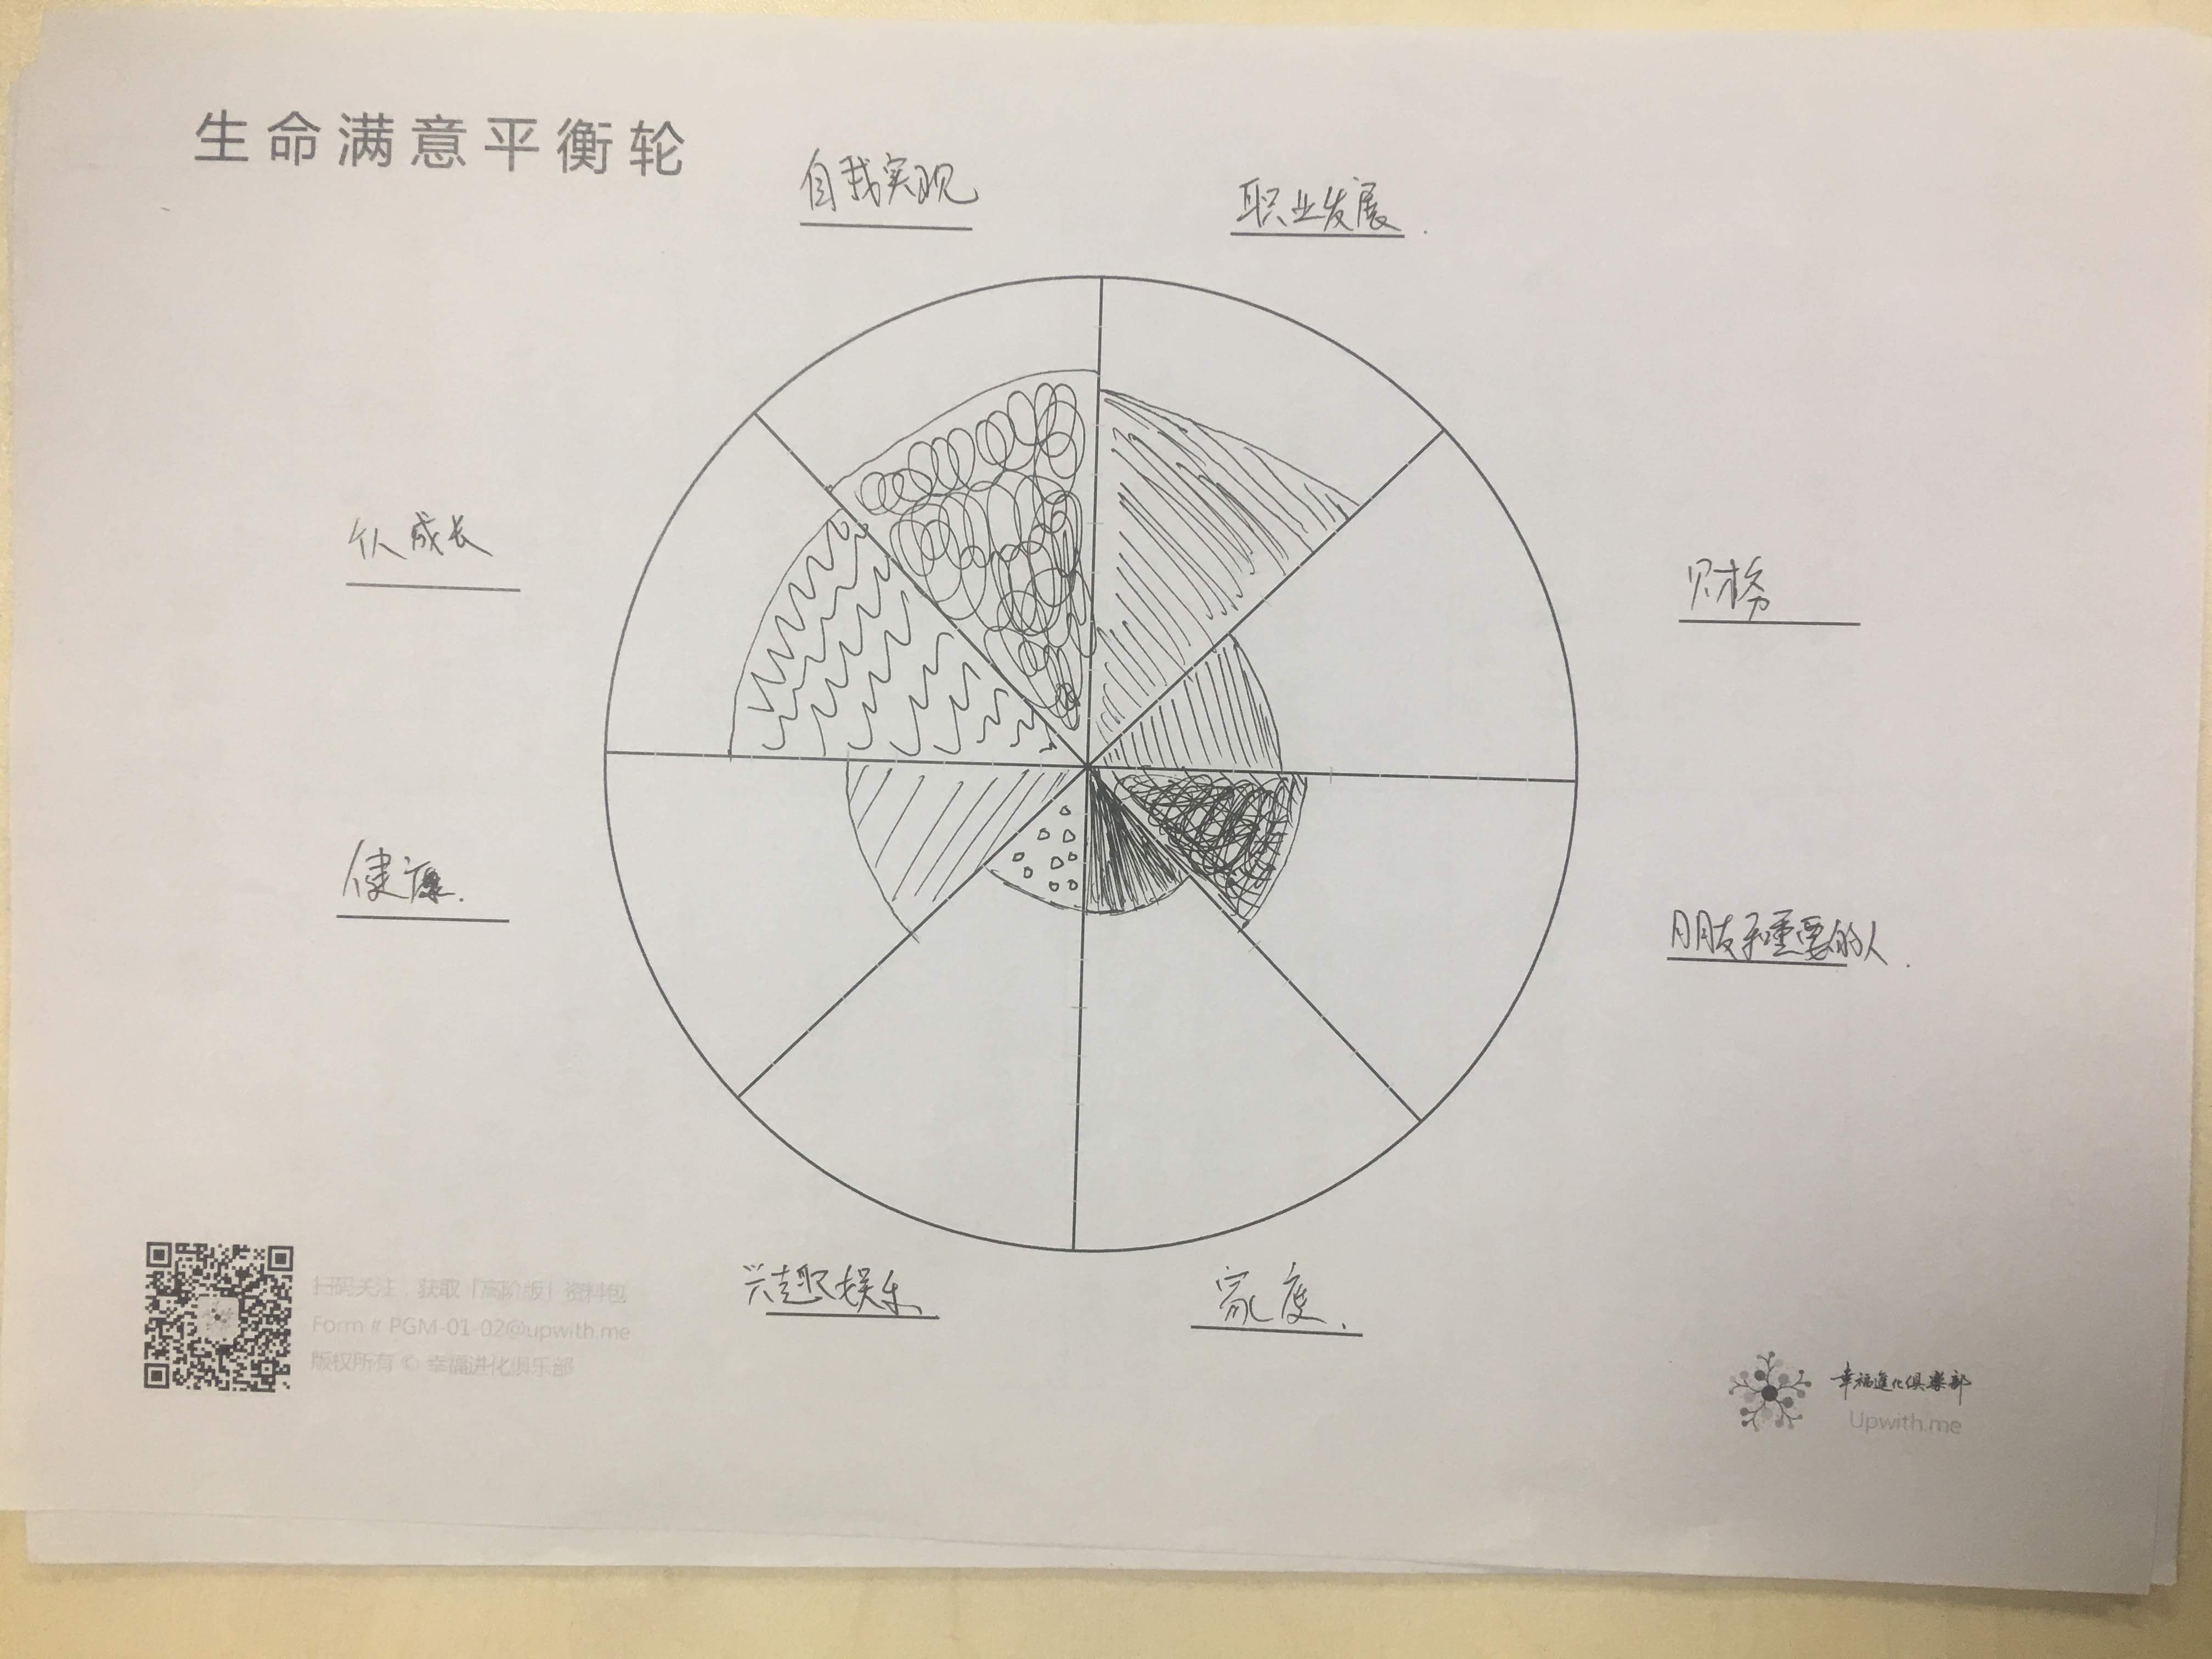 生命满意平衡轮
自我实现
职业发展.
个人成长
财务
健康.
朋友和重要的人.
兴趣娱乐
家庭.
扫码关注，获取「高阶版」资料包
Form # PGM-01-02@upwith.me
版权所有 © 幸福进化俱乐部
幸福進化俱樂部
Upwith.me